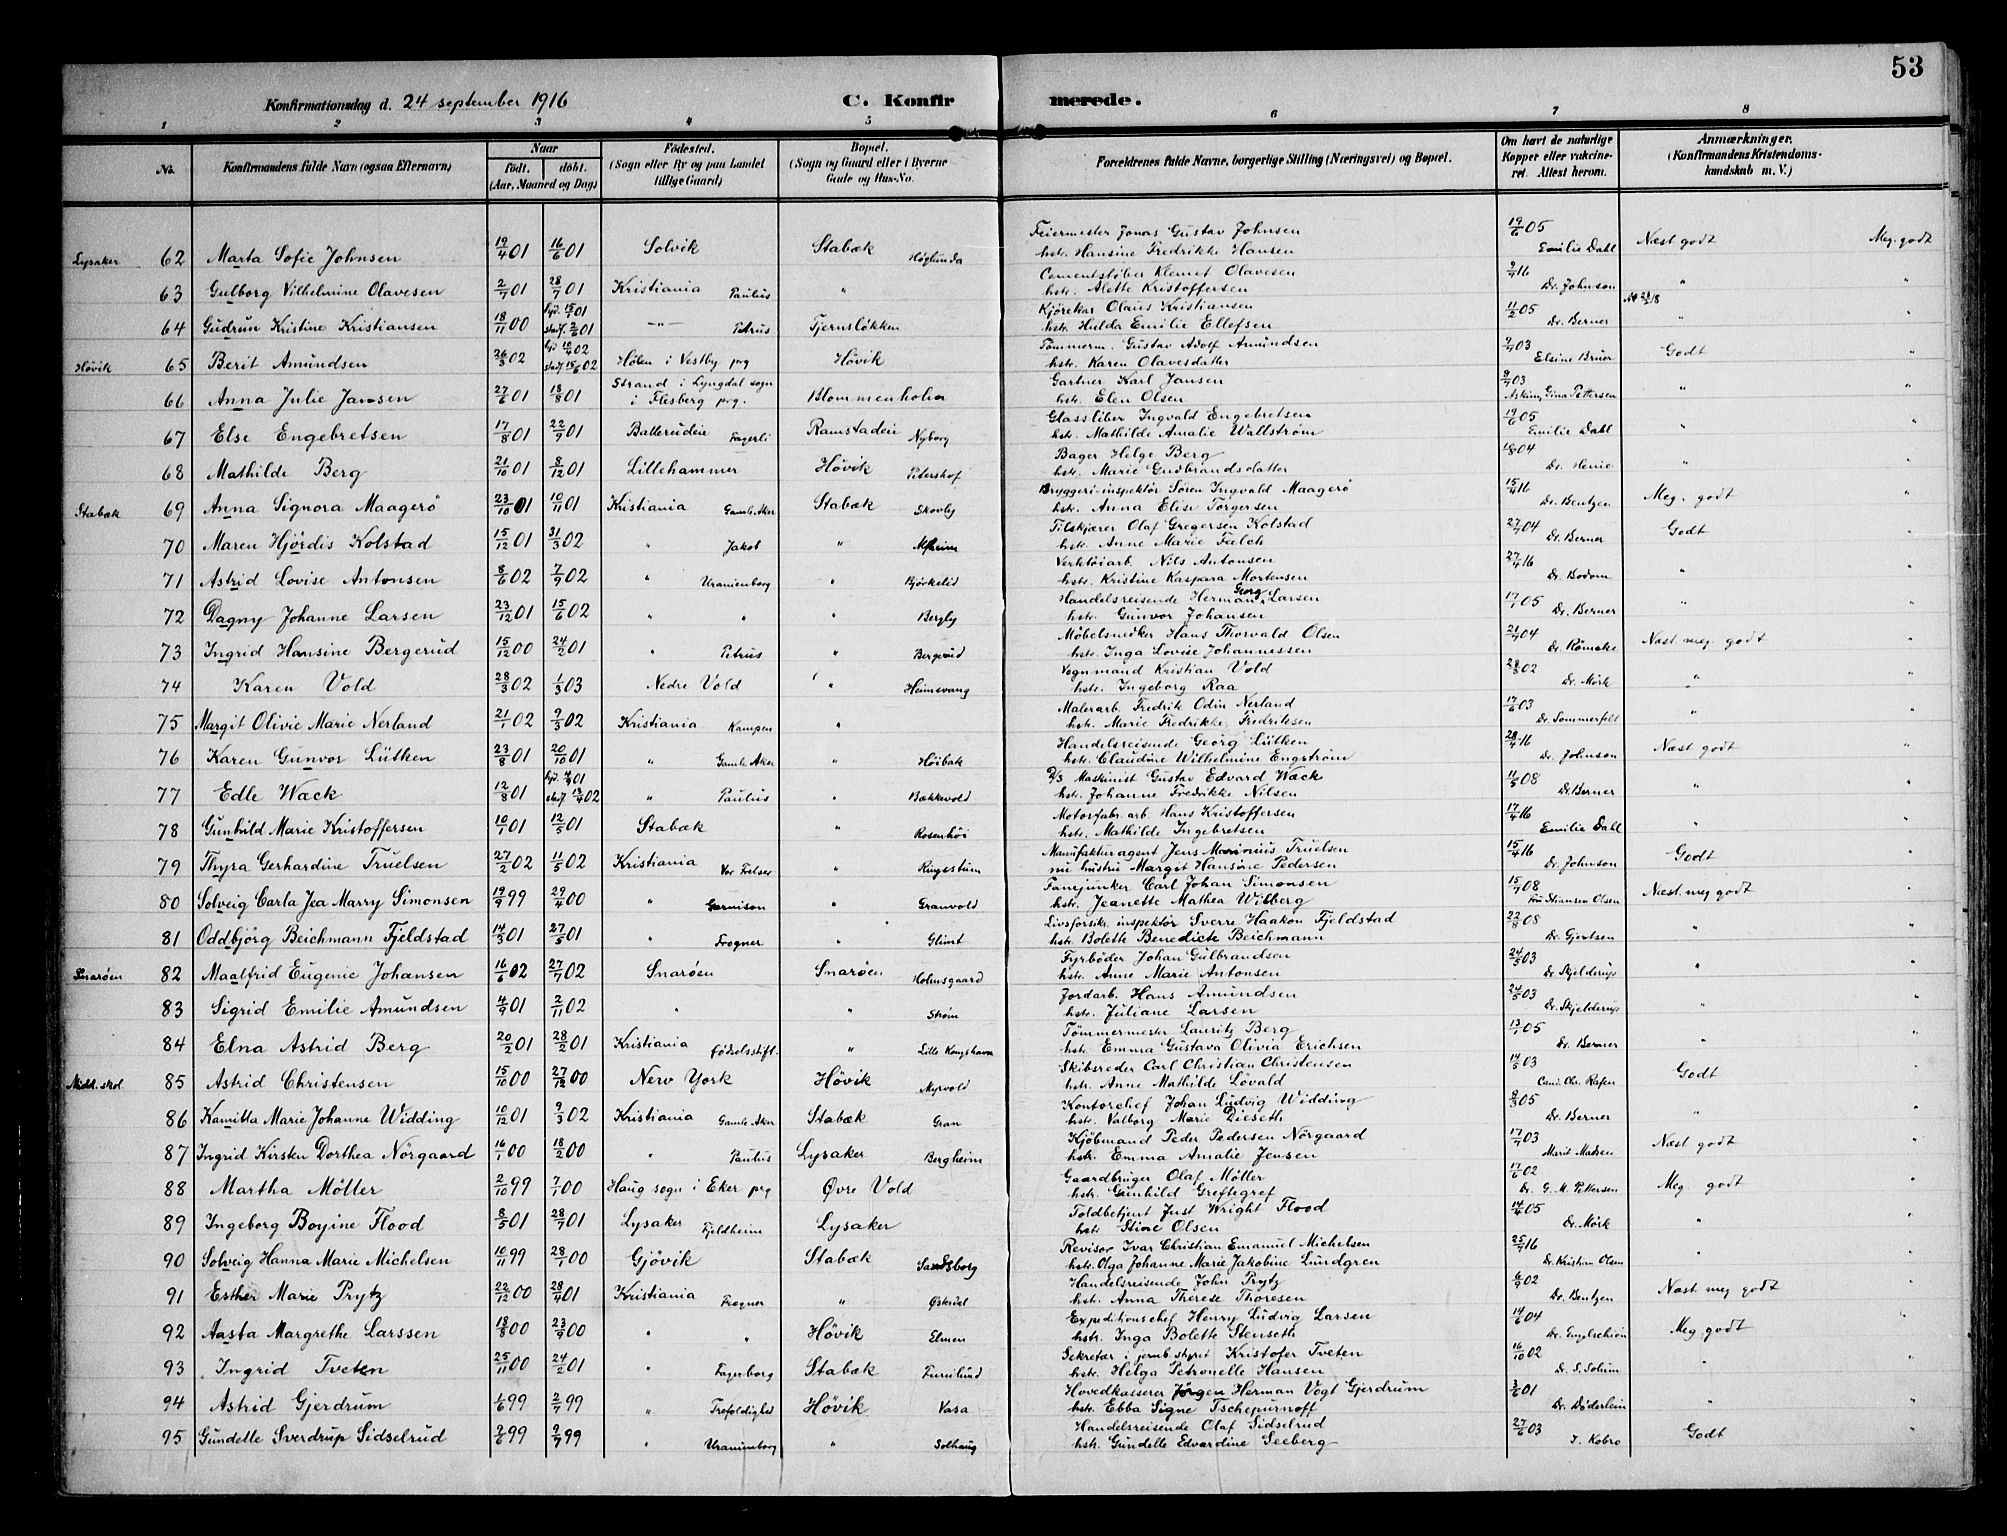 53
Konfirmationsdag d. 24 september 1916 C. Konfirmerede.
1 2 3 4 5 6 7 8
No. Konfirmandens fulde Navn (ogsaa Efternavn) Naar født. døbt. (Aar, Maaned og Dag) Fødested. (Sogn eller By og paa Landet tillige Gaard) Bopæl. (Sogn og Gaard eller i Byerne Gade og Hus-No. Forældrenes fulde Navne, borgerlige Stilling (Næringsvei) og Bopæl. Om havt de naturlige Kopper eller vakcineret. Attest herom. Anmærkninger. (Konfirmandens Kristendomskundskab m. V.)
Lysaker 62 Marta Sofie Johnsen 19/4 01 16/6 01 Solvik Stabæk Høglunda Feiermester Jonas Gustav Johnsen hstr. Hansine Fredrikke Hansen 19/6 05 Emilie Dahl Næst godt Meg. godt
63 Gulborg Vilhelmine Olavesen 2/7 01 28/7 01 Kristiania Paulus " Cementstøber Klemet Olavesen hstr. Alette Kristoffersen 9/2 16 Dr. Johnson " "
64 Gudrun Kristine Kristiansen 18/11 00 15/1 01 stadf. 2/6 01 —"— Petrus Tjernsløkken Kjørekar Olaus Kristiansen hstr. Hulda Emilie Ellefsen 11/2 05 Dr. Berner " "
Høvik 65 Berit Amundsen 26/3 02 10/4 02 stadf. 15/6 02 Hølen i Vestby prg Høvik Tømmerm. Gustav Adolf Amundsen hstr. Karen Olavesdatter 9/7 03 Elsine Bruer Godt "
66 Anna Julie Jansen 27/6 01 18/8 01 Strand i Lyngdal sogn i Flesberg prg. Blommenholm Gartner Karl Jansen hstr. Elen Olsen 9/7 03 Askim, Gina Pettersen " "
67 Else Engebretsen 17/8 01 22/9 01 Ballerudeie Fagerli Ramstadeie Nyborg Glassliber Ingvald Engebretsen hstr. Mathilde Amalie Wallstrøm 19/6 05 Emilie Dahl "
68 Mathilde Berg 21/10 01 8/12 01 Lillehammer Høvik Petershof Bager Helge Berg hstr. Marie Gudbrandsdatter 10/8 04 Dr. Henie "
Stabæk 69 Anna Signora Maagerö 23/10 01 10/11 01 Kristiania Gamle Aker Stabæk Skovby Bryggeri-inspektør Søren Ingvald Maagerö hstr. Anna Elise Torgersen 15/4 16 Dr. Bentzen Meg. godt "
70 Maren Hjördis Kolstad 15/12 01 31/3 02 " Jakob " Tilskjærer Olaf Gregersen Kolstad hstr. Anne Marie Falch 27/7 04 Dr. Berner Godt
71 Astrid Lovise Antonsen 8/6 02 7/9 02 " Uranienborg " Bjørkelid Verktøiarb. Nils Antonsen hstr. Kristine Kaspara Mortensen 27/4 16 Dr. Bodom " "
72 Dagny Johanne Larsen 23/12 01 15/6 02 " " " Bergly Handelsreisende Herman Georg Larsen hstr. Gunvor Johansen 17/1 05 Dr. Berner " "
73 Ingrid Hansine Bergerud 15/12 00 24/2 01 " Petrus " Bergerud Møbelsnedker Hans Thorvald Olsen hstr. Inga Lovise Johannessen 21/7 04 Dr. Römcke Næst meg. godt "
74 Karen Vold 28/3 02 1/3 03 Nedre Vold " Heimsvang Vognmand Kristian Vold hstr. Ingeborg Raa 28/8 02 Dr. Mörk " "
75 Margit Olivie Marie Nerland 21/1 02 9/3 02 Kristiania Kampen " Malerarb. Fredrik Odin Nerland hstr. Marie Fredrikke Fredriksen 17/6 03 Dr. Sommerfelt "
76 Karen Gunvor Lütken 23/8 01 20/10 01 " Gamle Aker " Höibak Handelsreisende Georg Lütken hstr. Claudine Wilhelmine Engström 28/4 16 Dr. Johnson Næst godt "
77 Edle Wack 12/8 01 stadf. 13/4 02 " Paulus " Bækkevold D/S Maskinist Gustav Edvard Wack hstr. Johanne Fredrikke Nilsen 11/5 08 Dr. Berner " "
78 Gunhild Marie Kristoffersen 10/1 01 12/5 01 Stabæk " Rosenhöi Motorfabr. arb. Hans Kristoffersen hstr. Mathilde Ingebretsen 17/4 16 Emilie Dahl " "
79 Thyra Gerhardine Truelsen 27/2 02 11/5 02 Kristiania Vor Frelser " Ringsstim Manufakturagent Jens Marinius Truelsen nu hustru Margit Hansine Pedersen 15/4 16 Dr. Johnson Godt "
80 Solveig Carla Jea Marry Simonsen 19/9 99 29/4 00 " Garnison " Granvold Fanejunker Carl Johan Simonsen hstr. Jeanette Mathea Wilberg 15/7 08 Næst meg godt "
81 Oddbjörg Beichmann Fjeldstad 14/3 01 27/5 01 " Frogner " Glimt Livsforsik. inspektør Sverre Haakon Fjeldstad hstr. Bolette Benedicte Beichmann 22/8 08 Dr. Gjertsen " "
Snarøen 82 Maalfrid Eugenie Johansen 16/6 02 27/7 02 Snarøen Snarøen Holmsgaard Fyrbøder Johan Gulbrandsen hstr. Anne Marie Antonsen 24/5 03 Dr. Skjelderup " "
83 Sigrid Emilie Amundsen 4/9 01 2/11 02 " " Strøm Jordarb. Hans Amundsen hstr. Juliane Larsen 24/5 03 Dr. Skjelderup " "
84 Elna Astrid Berg 20/2 01 28/2 01 Kristiania fødselsstift. " Lille Kongshavn Tömmermester Lauritz Berg hstr. Emma Gustava Olivia Erichsen 13/1 05 Dr. Berner " "
Midd. skol. 85 Astrid Christensen 15/10 00 27/12 00 New York Høvik Myrvold Skibsreder Carl Christian Christensen hstr. Anne Mathilde Lövald 14/5 03 Cand. Chr. Rafen Godt "
86 Kamilla Marie Johanne Widding 10/12 01 9/3 02 Kristiania Gamle Aker Stabæk Gran Kontorchef Johan Ludvig Widding hstr. Valborg Marie Dieseth 2/3 05 Dr. Berner " "
87 Ingrid Kirsten Dorthea Nörgaard 16/1 00 18/2 00 " Paulus Lysaker Bergheim Kjöbmand Peder Pedersen Nörgaard hstr. Emma Amalie Jensen 17/7 03 Marit Madsen Næst godt "
88 Martha Möller 2/10 99 7/1 00 Haug sogn i Eker prg Øvre Vold Gaardbruger Olaf Möller hstr. Gunhild Greftegref 17/6 02 Dr. G. M. Pettersen Meg godt "
89 Ingeborg Boyine Flood 8/5 01 28/7 01 Lysaker Fjeldheim Lysaker Toldbetjent Just Wright Flood hstr. Stine Olsen 14/4 05 Dr. Mörk " "
90 Solveig Hanna Marie Michelsen 10/11 99 28/1 00 Gjövik Stabæk Sandsborg Revisor Ivar Christian Emanuel Michelsen hstr. Olga Johanne Marie Jakobine Lundgren 25/7 16 Dr. Kristian Olsen " "
91 Esther Marie Prytz 22/12 00 28/4 01 Kristiania Frogner " Handelsreisende John Prytz hstr. Anna Therese Thoresen 6/9 02 Dr. Bentzen Næst meg godt "
92 Aasta Margrethe Larssen 18/8 00 23/9 00 " " Høvik Elmen Expeditionschef Henry Ludvig Larsen hstr. Inga Bolette Stenseth 14/6 04 Dr. Engelschiön Meg godt "
93 Ingrid Tveten 25/11 00 24/2 01 " Fagerborg Stabæk Furulund Sekretær i jernb. styret Kristofer Tveten hstr. Helga Petronelle Hansen 16/10 02 Dr. S. Solum " "
94 Astrid Gjerdrum 1/6 99 2/7 99 " Trefoldighed Høvik Vasa Hovedkasserer Jörgen Herman Vogt Gjerdrum hstr. Ebba Signe Tschepurnoff 3/6 01 Dr. Döderlein " "
95 Gundelle Sverdrup Sidselrud 2/6 99 9/7 99 " Uranienborg " Solhaug Handelsreisende Olaf Sidselrud hstr. Gundelle Edvardine Seeberg 27/6 03 J. Kobro Godt "